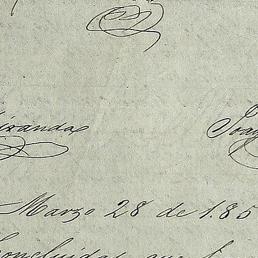 Miranda Joaq
Marzo 28 de 185
Concluidas que